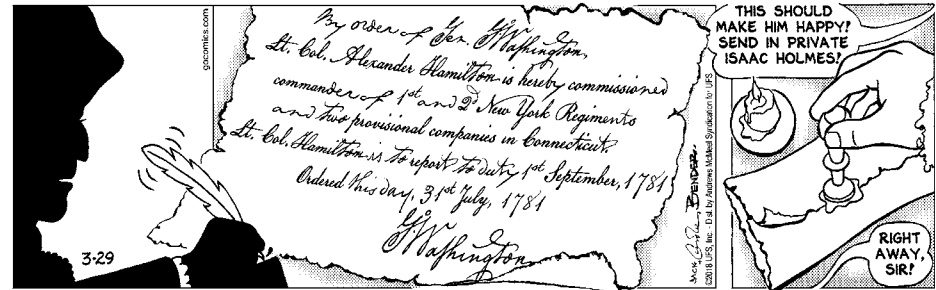 gocomics.com
By order of Gen. G Washington,
Lt. Col. Alexander Hamilton is hereby commissioned
commander of 1st and 2d New York Regiments
and two provisional companies in Connecticut.
Lt. Col. Hamilton is to report to duty 1st September, 1781
Ordered this day, 31st July, 1781
G Washington
3-29
JACK BENDER
©2018 UFS, Inc. - Dist. by Andrews McMeel Syndication for UFS
THIS SHOULD
MAKE HIM HAPPY!
SEND IN PRIVATE
ISAAC HOLMES!
RIGHT
AWAY,
SIR!